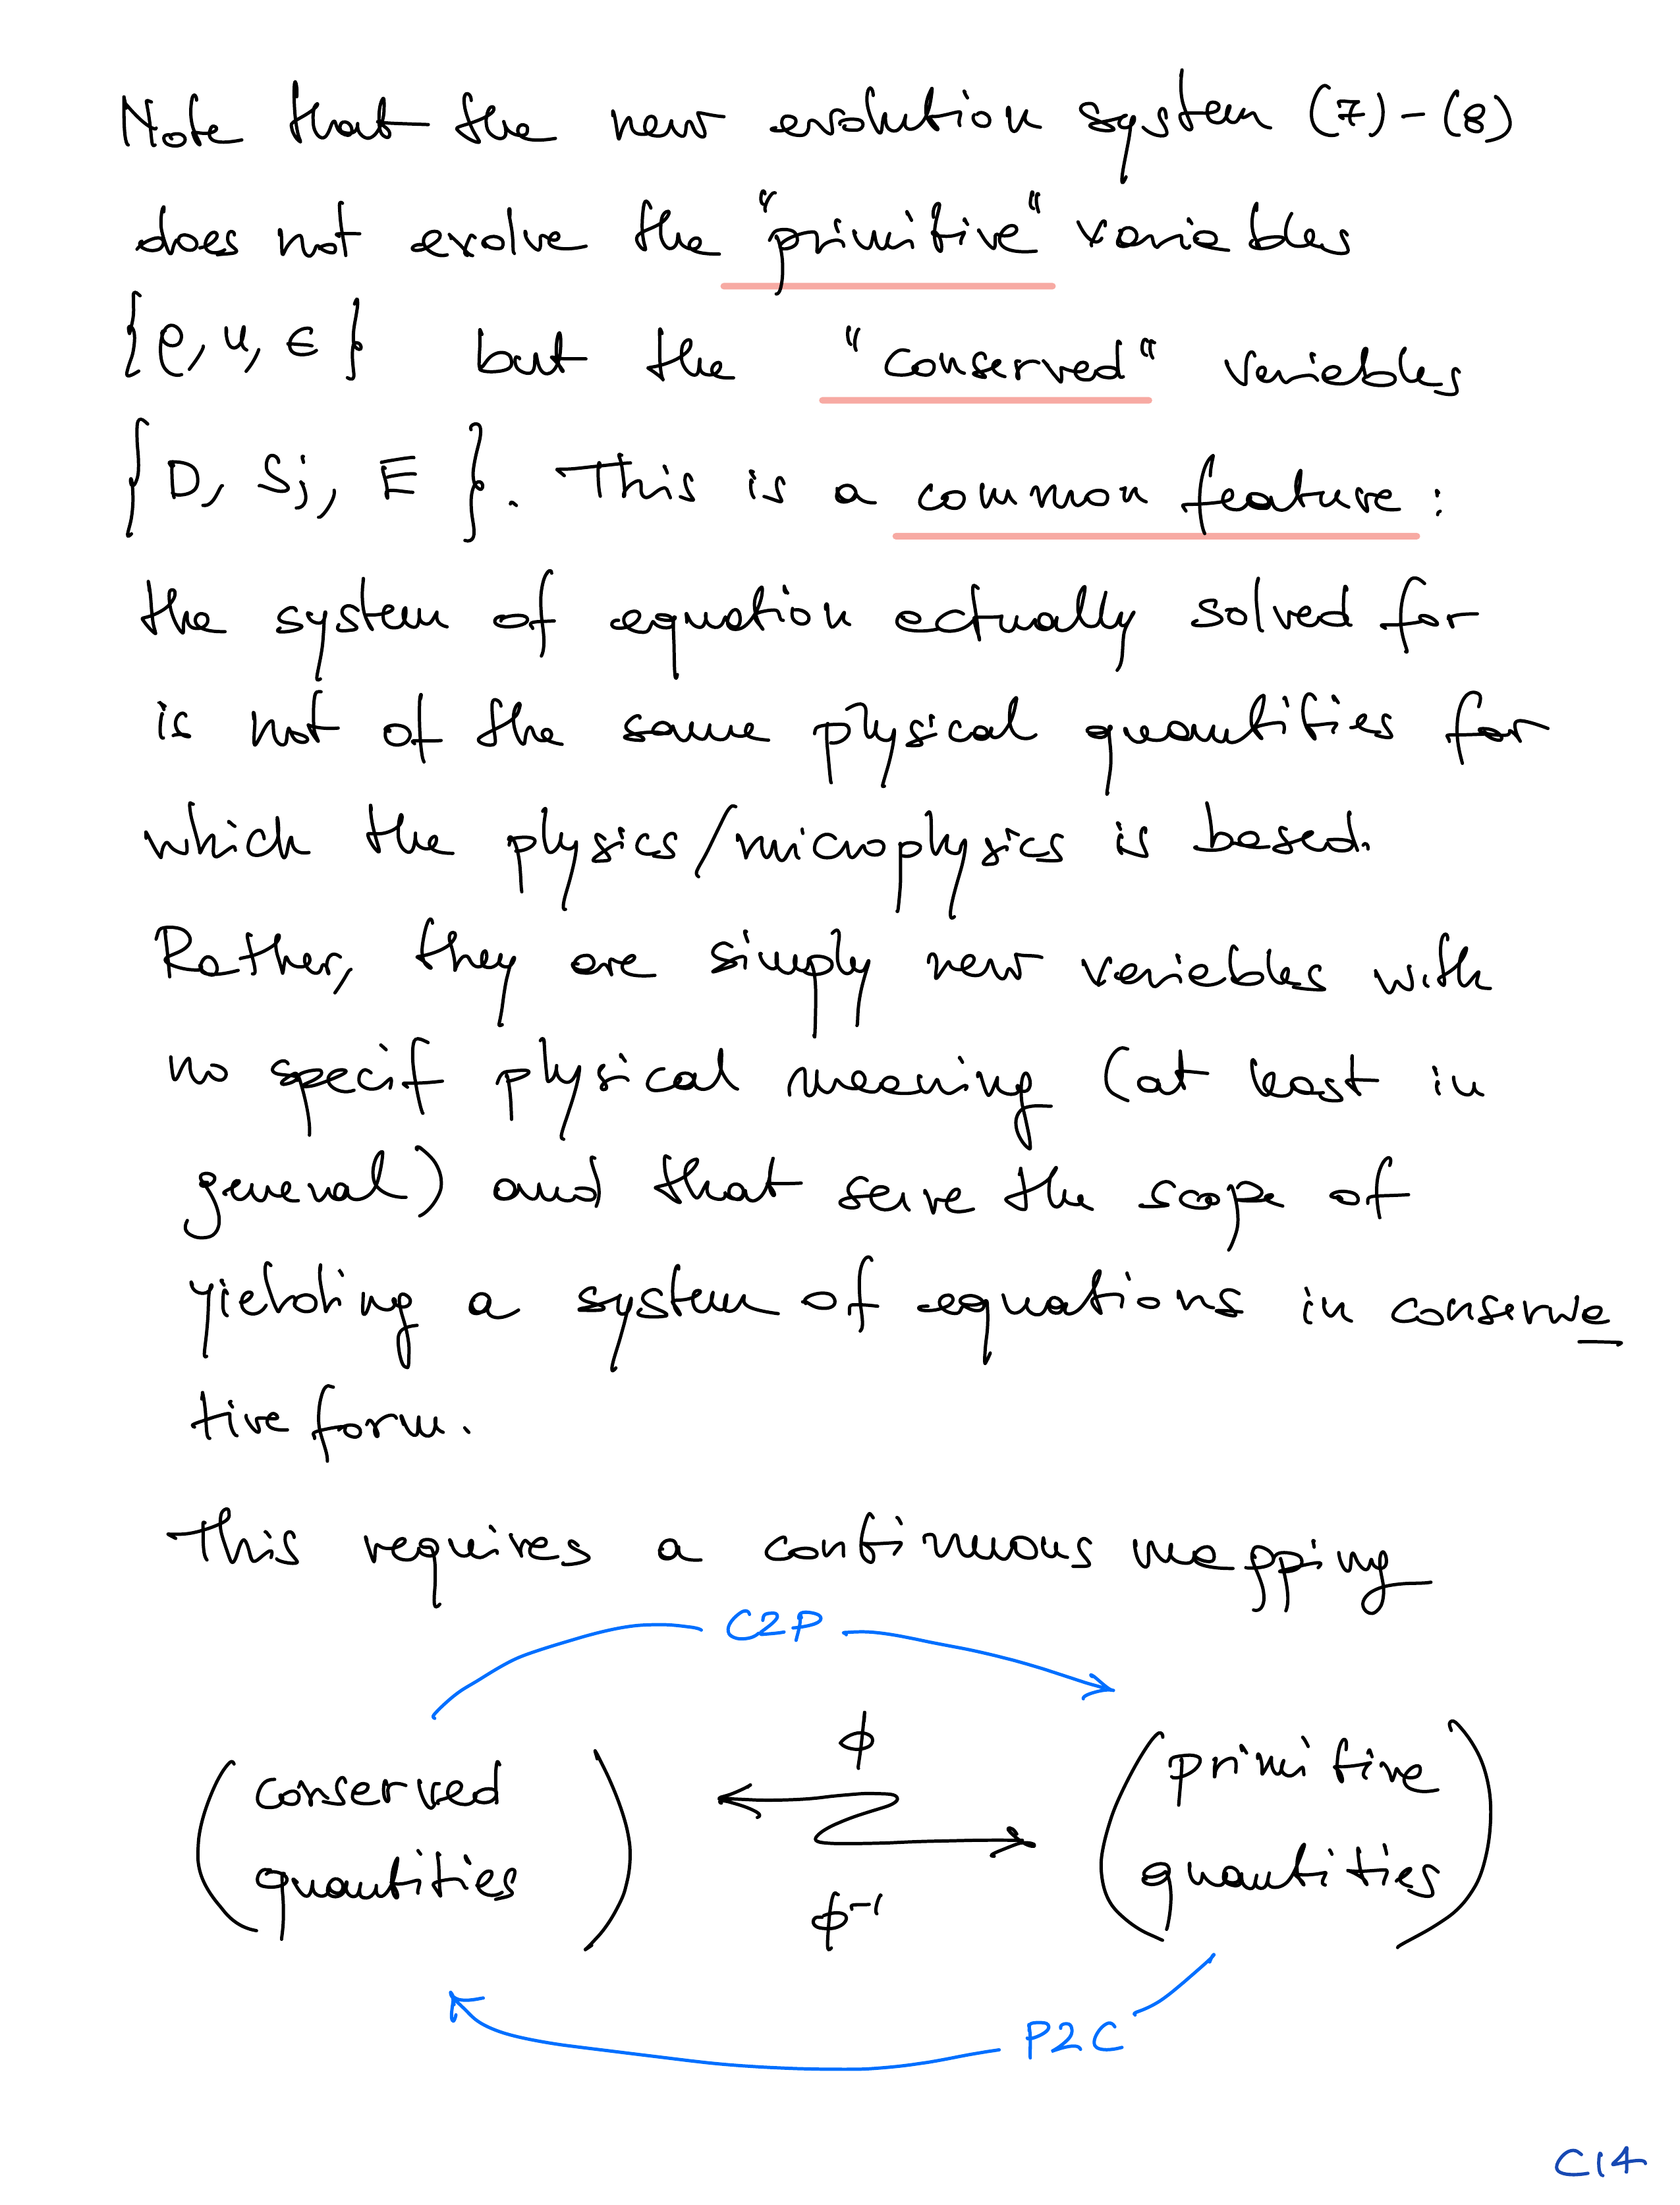 Note that the new evolution system (7)-(8)
does not evolve the "primitive" variables
{ρ, u, ϵ} but the "conserved" variables
{D, Sj, E}. This is a common feature:
the system of equation actually solved for
is not of the same physical quantities for
which the physics/microphysics is based.
Rather, they are simply new variables with
no specif physical meaning (at least in
general) and that serve the scope of
yielding a system of equations in conserva
tive form.
This requires a continuous mapping
C2P
ϕ
(conserved quantities) (primitive quantities)
ϕ⁻¹
P2C
C14